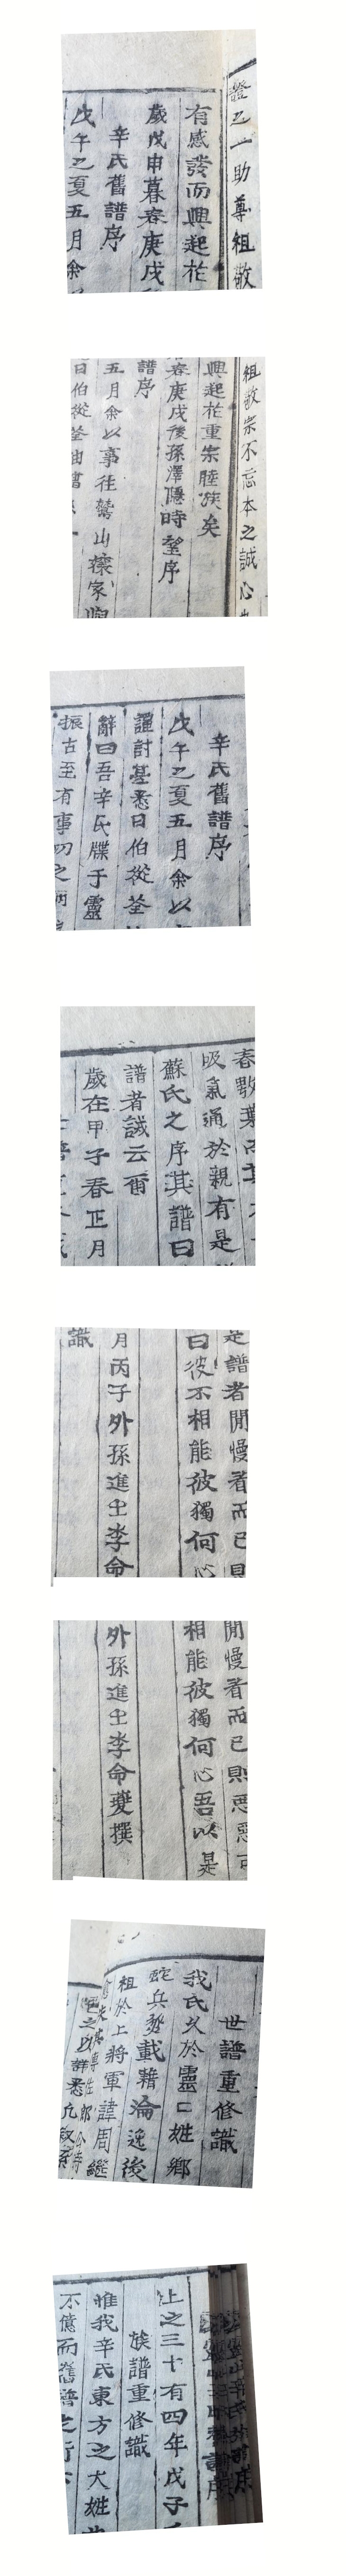 證之一助尊祖敬
有感發而興起於
歲戊申暮春庚戌
辛氏舊譜序
戊午之夏五月余
祖敬宗不忘本之誠心
興起於重宗睦族矣
春庚戌後孫澤隱時望序
譜序
五月余以事往鷲山
曰伯從荃
辛氏舊譜序
戊午之夏五月余以
曰伯從荃
辭曰吾辛氏牒于靈
振古至有事四之
吸氣通於親有是
蘇氏之序其譜曰
譜者誠云爾
歲在甲子春正月
是譜者閒慢看而已則
曰彼不相能彼獨何心
月丙子外孫進士李命
識
閒慢看而已則惡
相能彼獨何心吾以是
外孫進士李命夔撰
世譜重修識
我氏久於靈口姓鄉
兵燹載籍淪逸後
祖於上將軍諱周繼
上之三十有四年戊子
族譜重修識
惟我辛氏東方之大姓
不億而舊譜之行